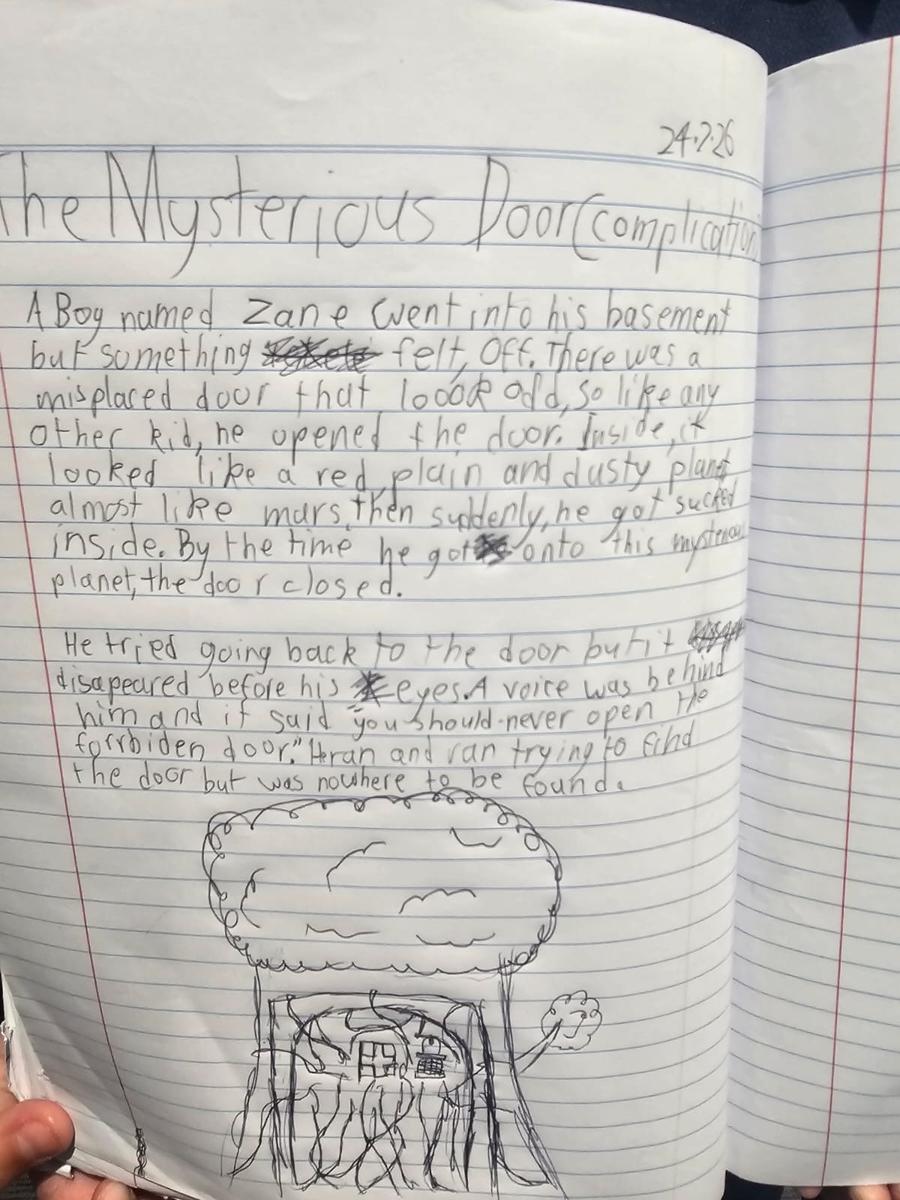 24.7.26
The Mysterious Door(complication
A Boy named Zane went into his basement
but something felt, Off. There was a
misplaced door that loook odd, so like any
other kid, he opened the door. Inside, it
looked like a red, plain and dusty planet
almost like mars, then suddenly, he got sucked
inside. By the time he got onto this mysterious
planet, the door closed.
He tried going back to the door but it
disapeared before his eyes. A voice was behind
him and it said "you should never open the
forrbiden door." He ran and ran trying to find
the door but was nowhere to be found.